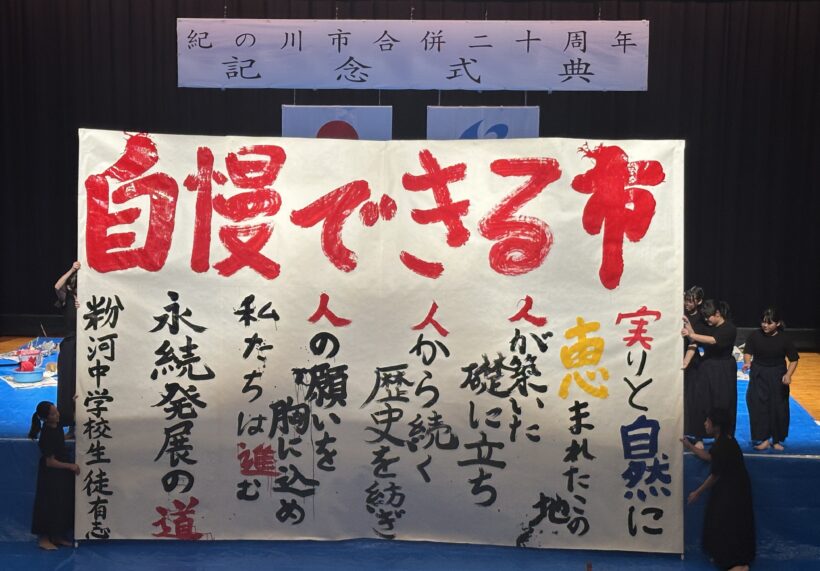 紀の川市合併二十周年
記念式典
自慢できる市
実りと自然に
恵まれたこの地
人が築いた
礎に立ち
人から続く
歴史を紡ぎ
人の願いを
胸に込め
私たちは進む
永続発展の道
粉河中学校生徒有志